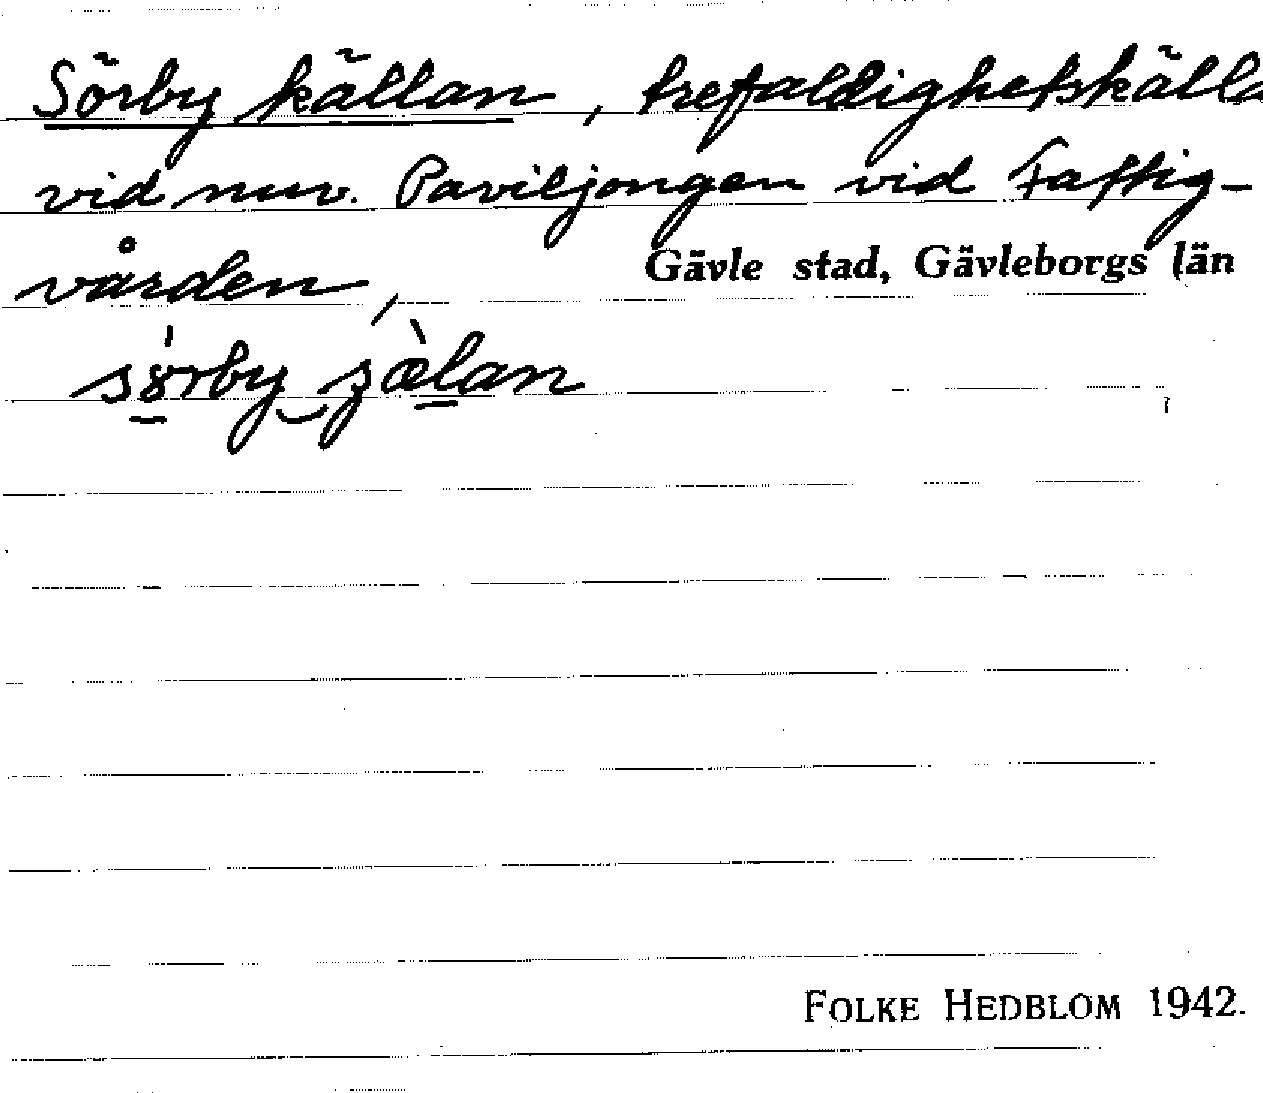 Sörby källan, trefaldighetskälla
vid nuv. Paviljongen vid Fattig-
vården,
Gävle stad, Gävleborgs län
FOLKE HEDBLOM 1942.